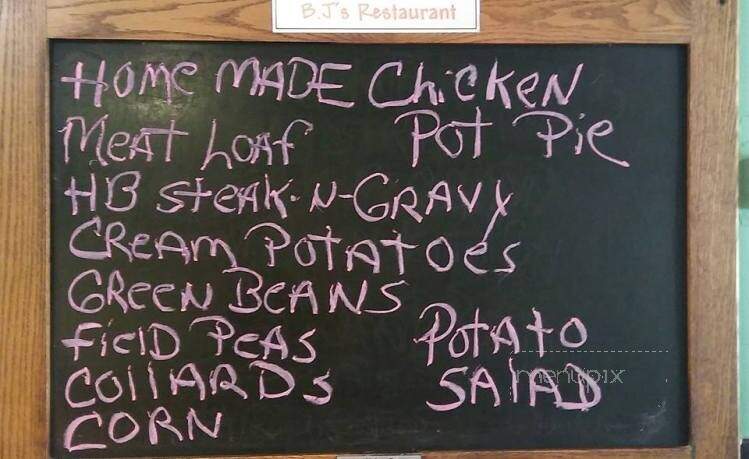 B.J's Restaurant
HOME MADE ChiCKeN
Meat Loaf Pot Pie
HB steak-N-GRAVY
CReAM Potatoes
GReeN BeANS
FielD PeAS Potato
CollARDs SAlAD
CORN
menupix